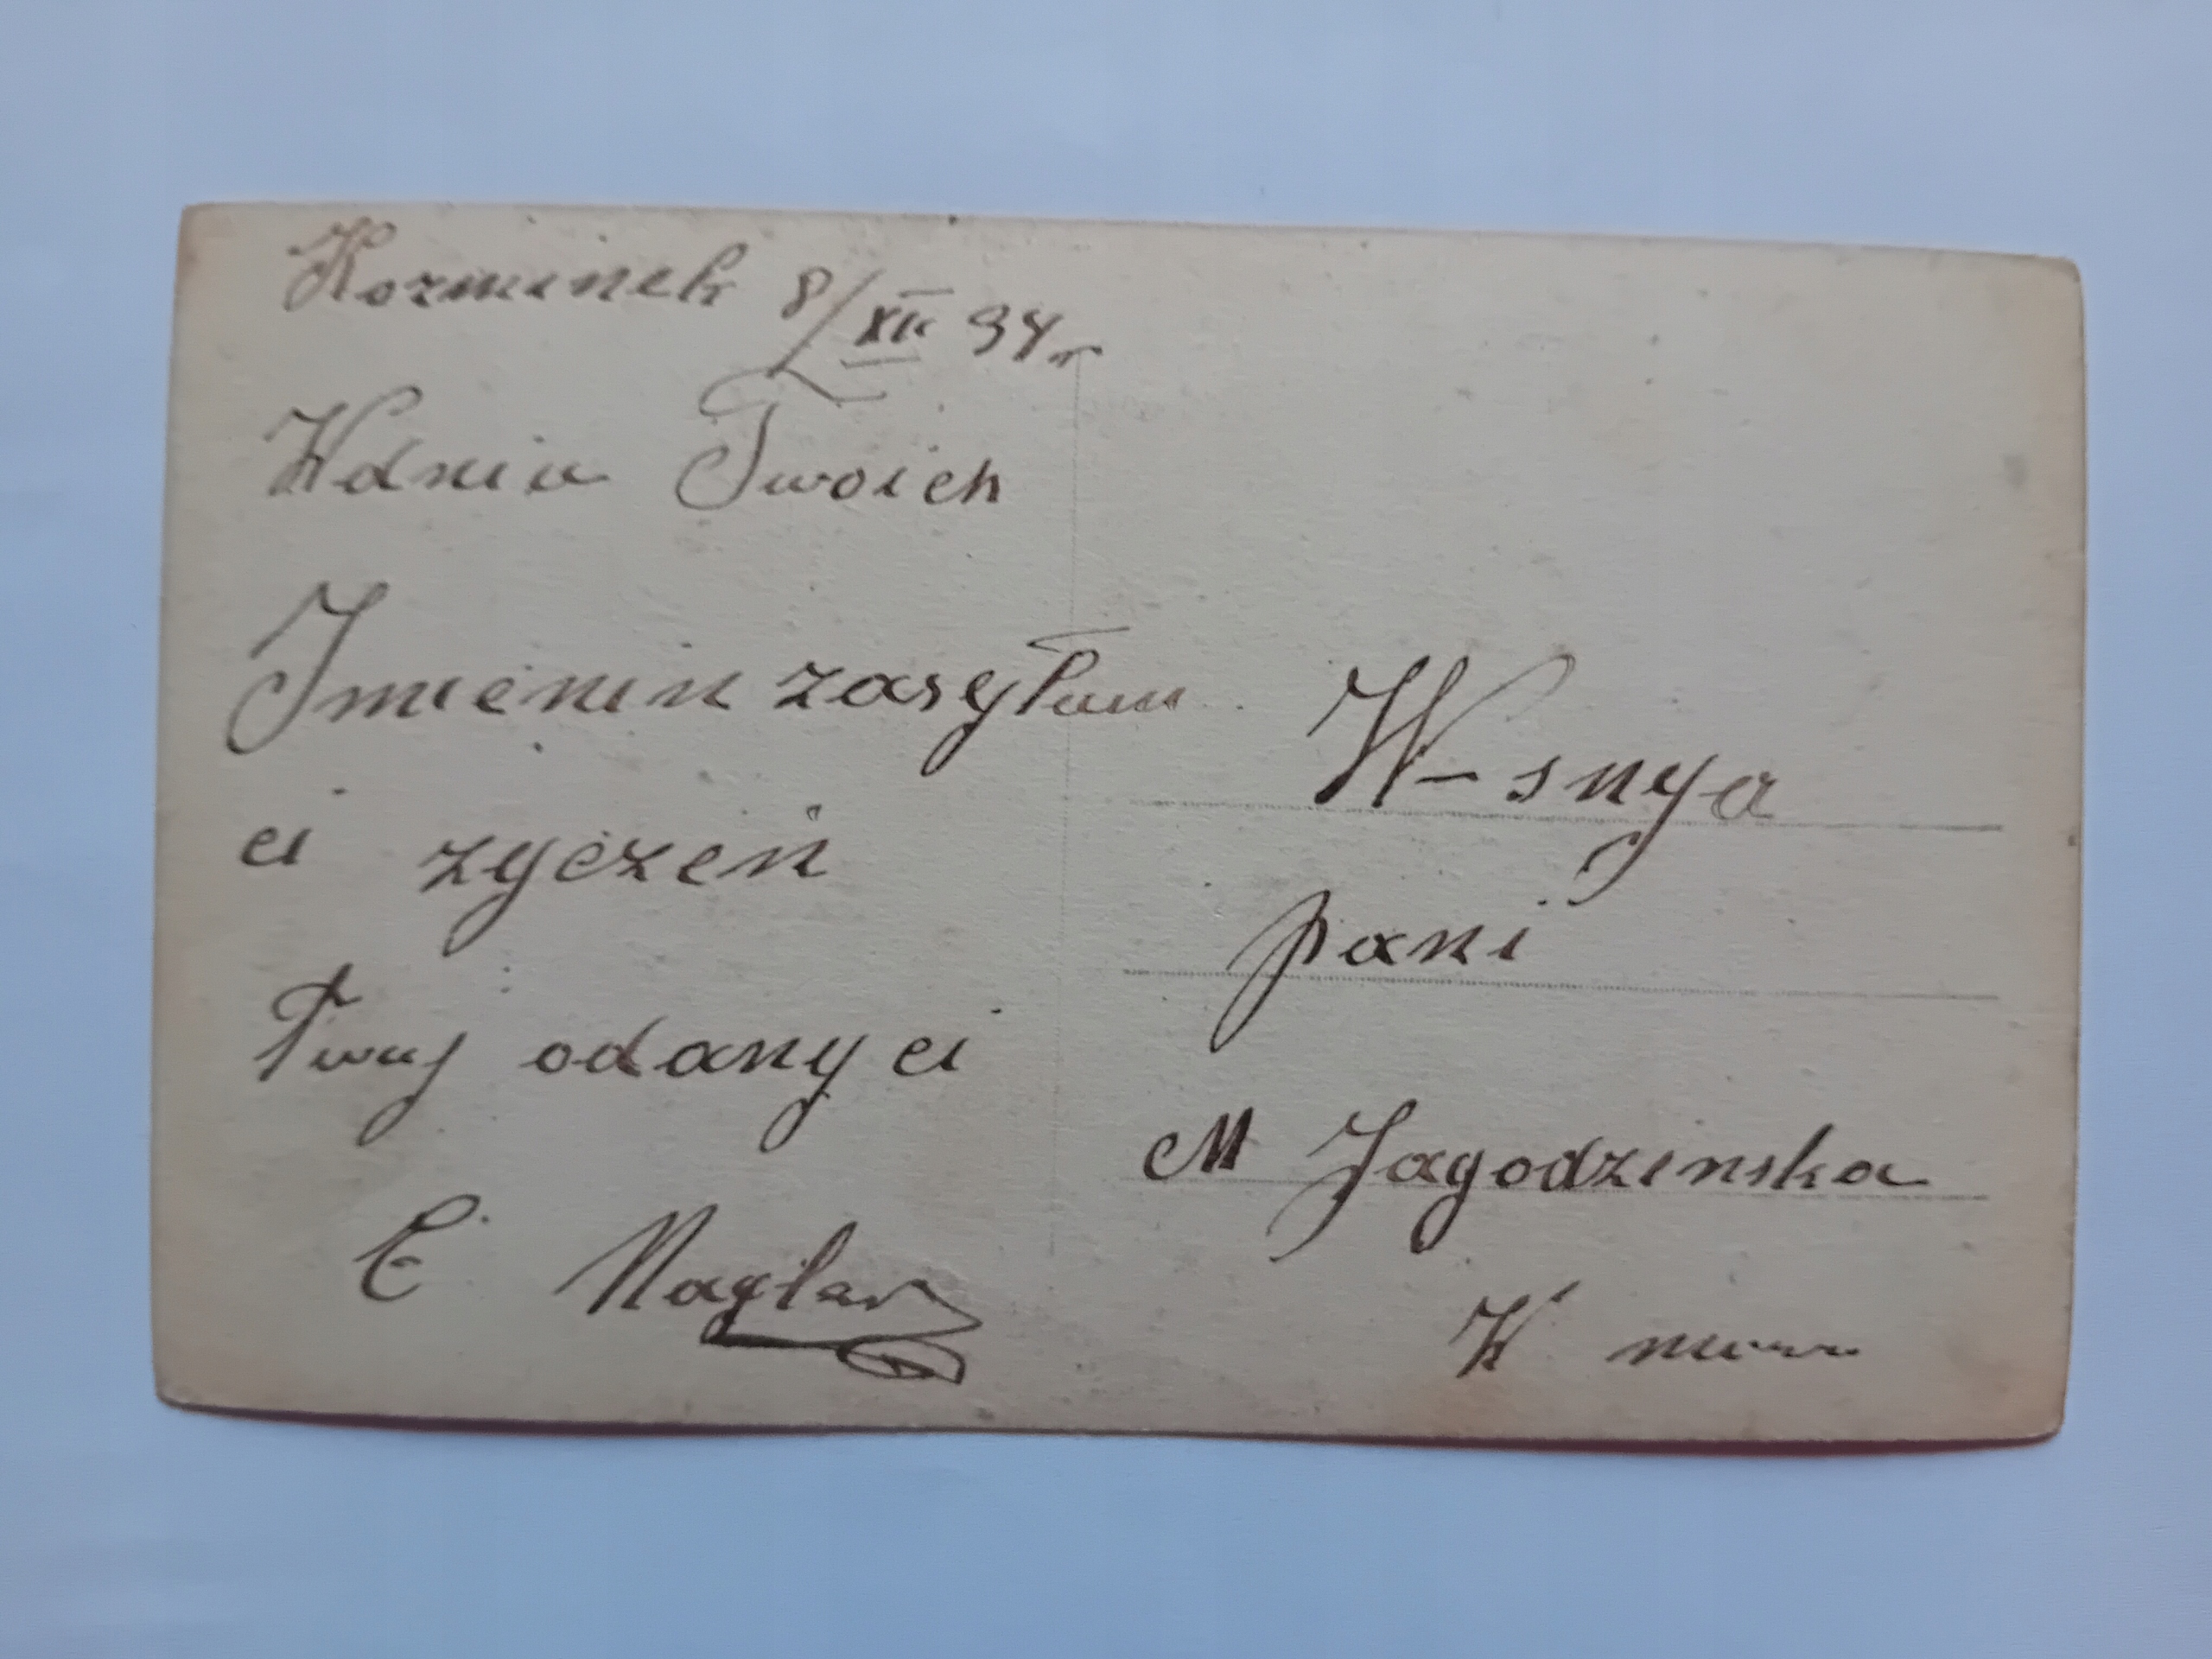 Kozminek 8/XII 34 r
Wdniu Twoich
Imienin zasyłam
ci zyczeń
Twuj odany ci
E. Nagler
W-snya
pani
M Jagodzinska
W